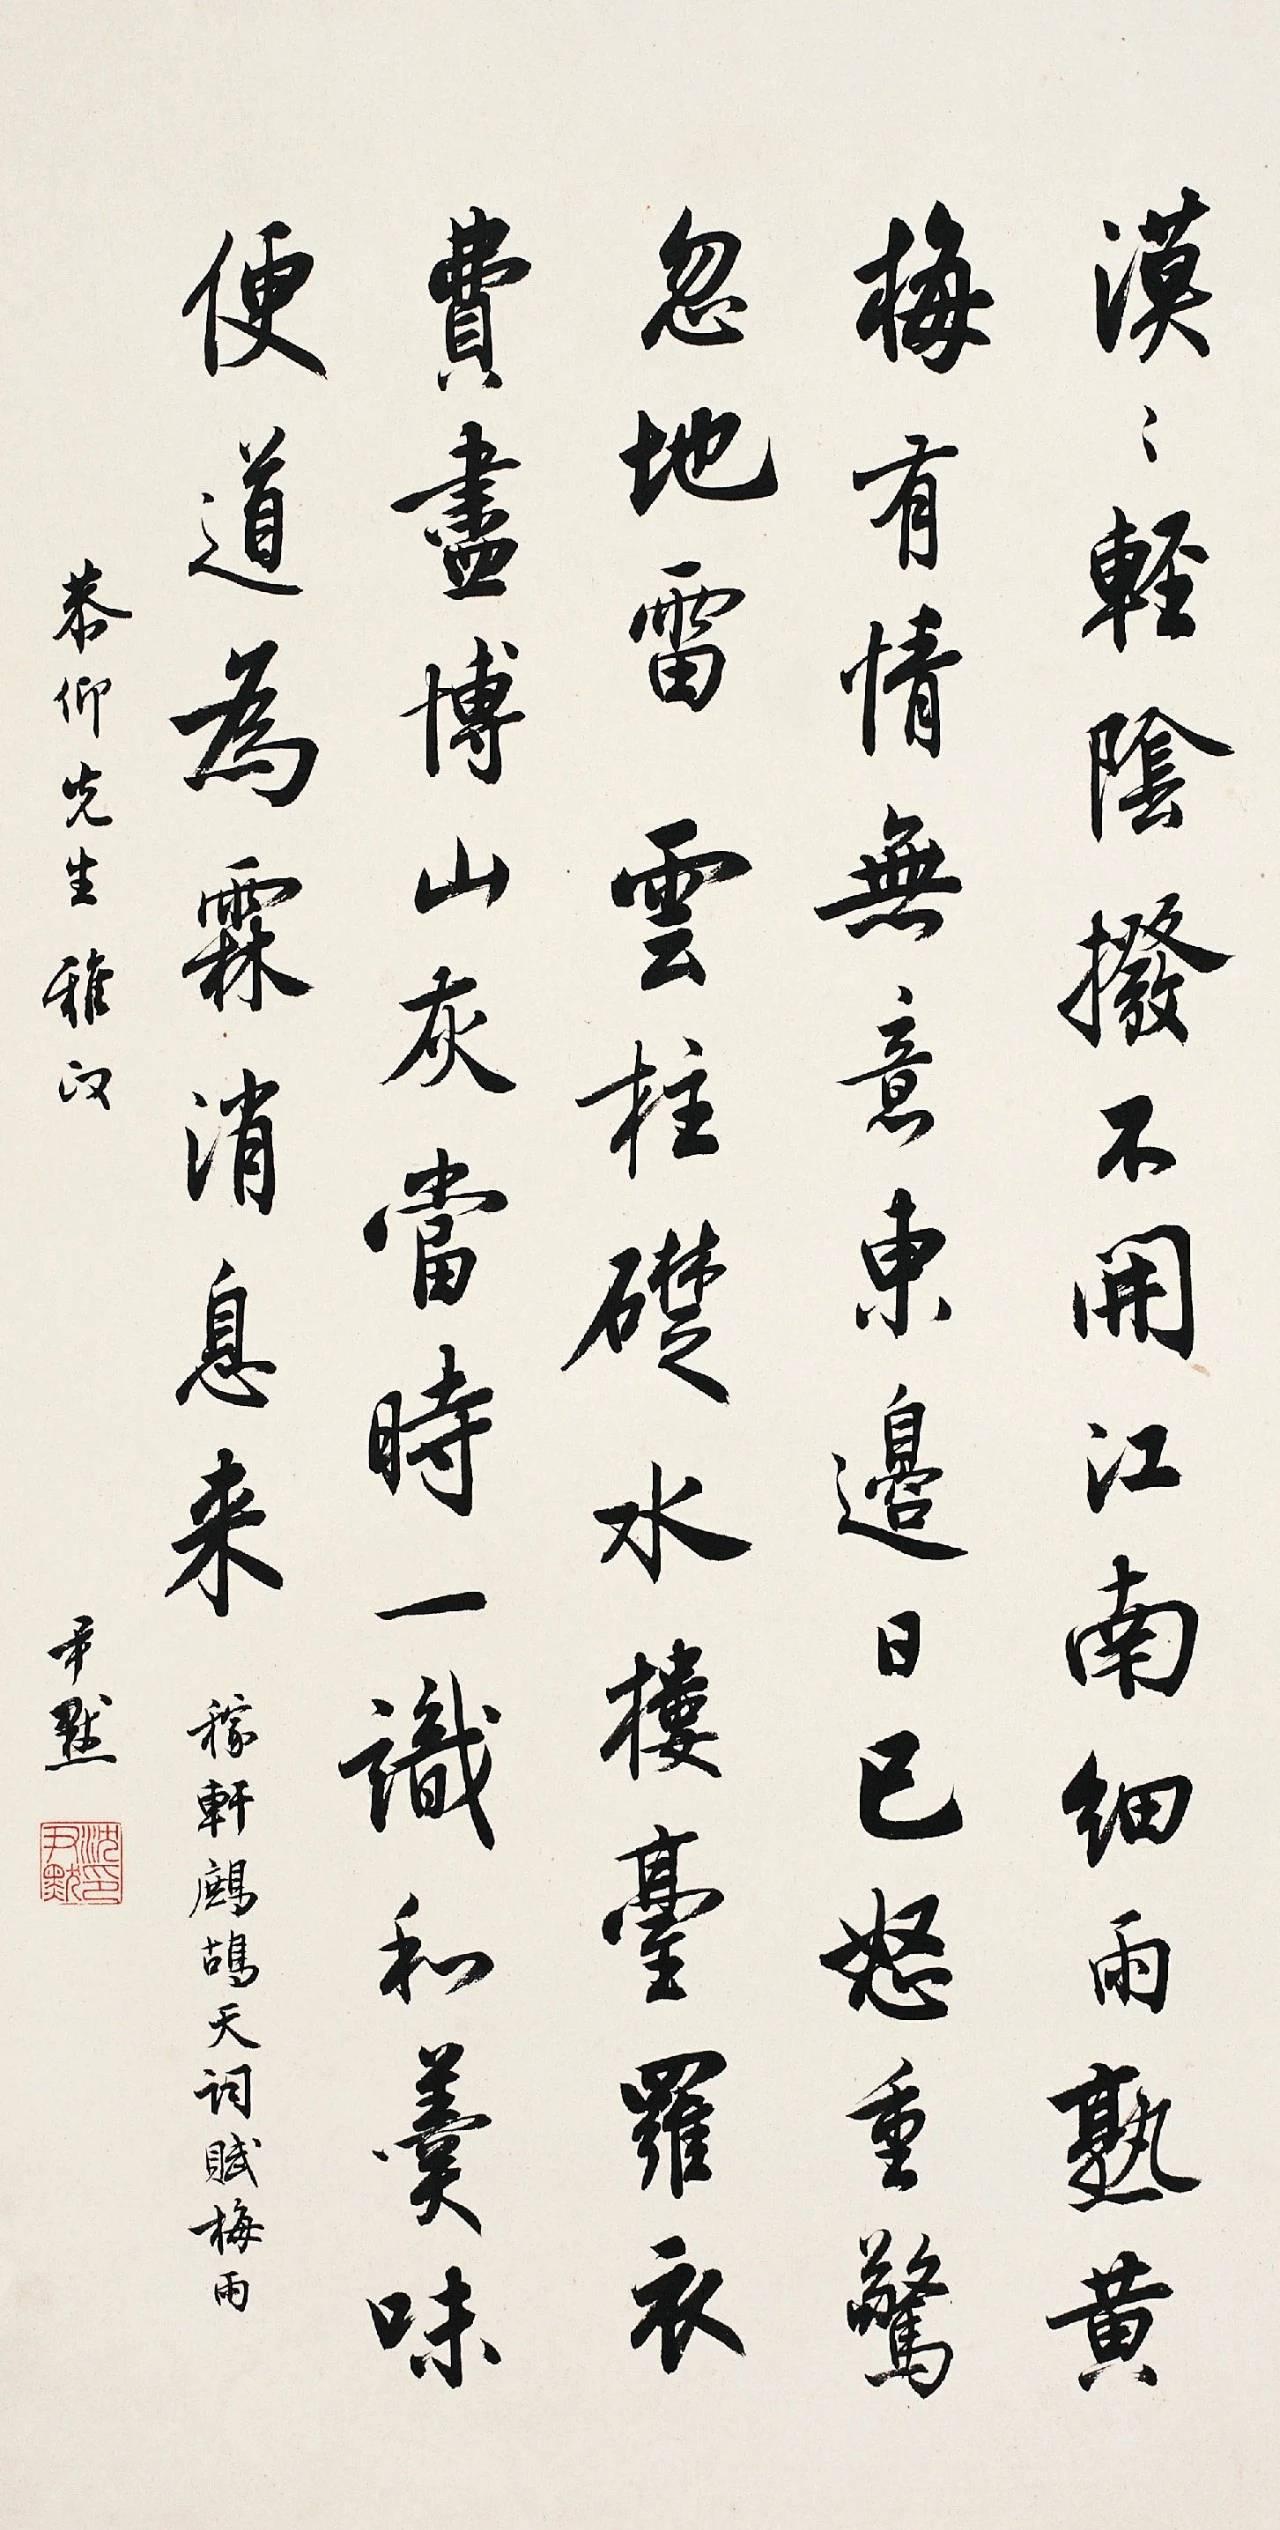 漠〻輕陰撥不開江南細雨熟黄
梅有情無意東邊日已怒重驚
忽地雷雲柱礎水樓臺羅衣
費盡博山灰當時一識和羹味
便道為霖消息来
稼軒鷓鴣天詞賦梅雨
恭仰先生雅政
尹默
沈尹默印